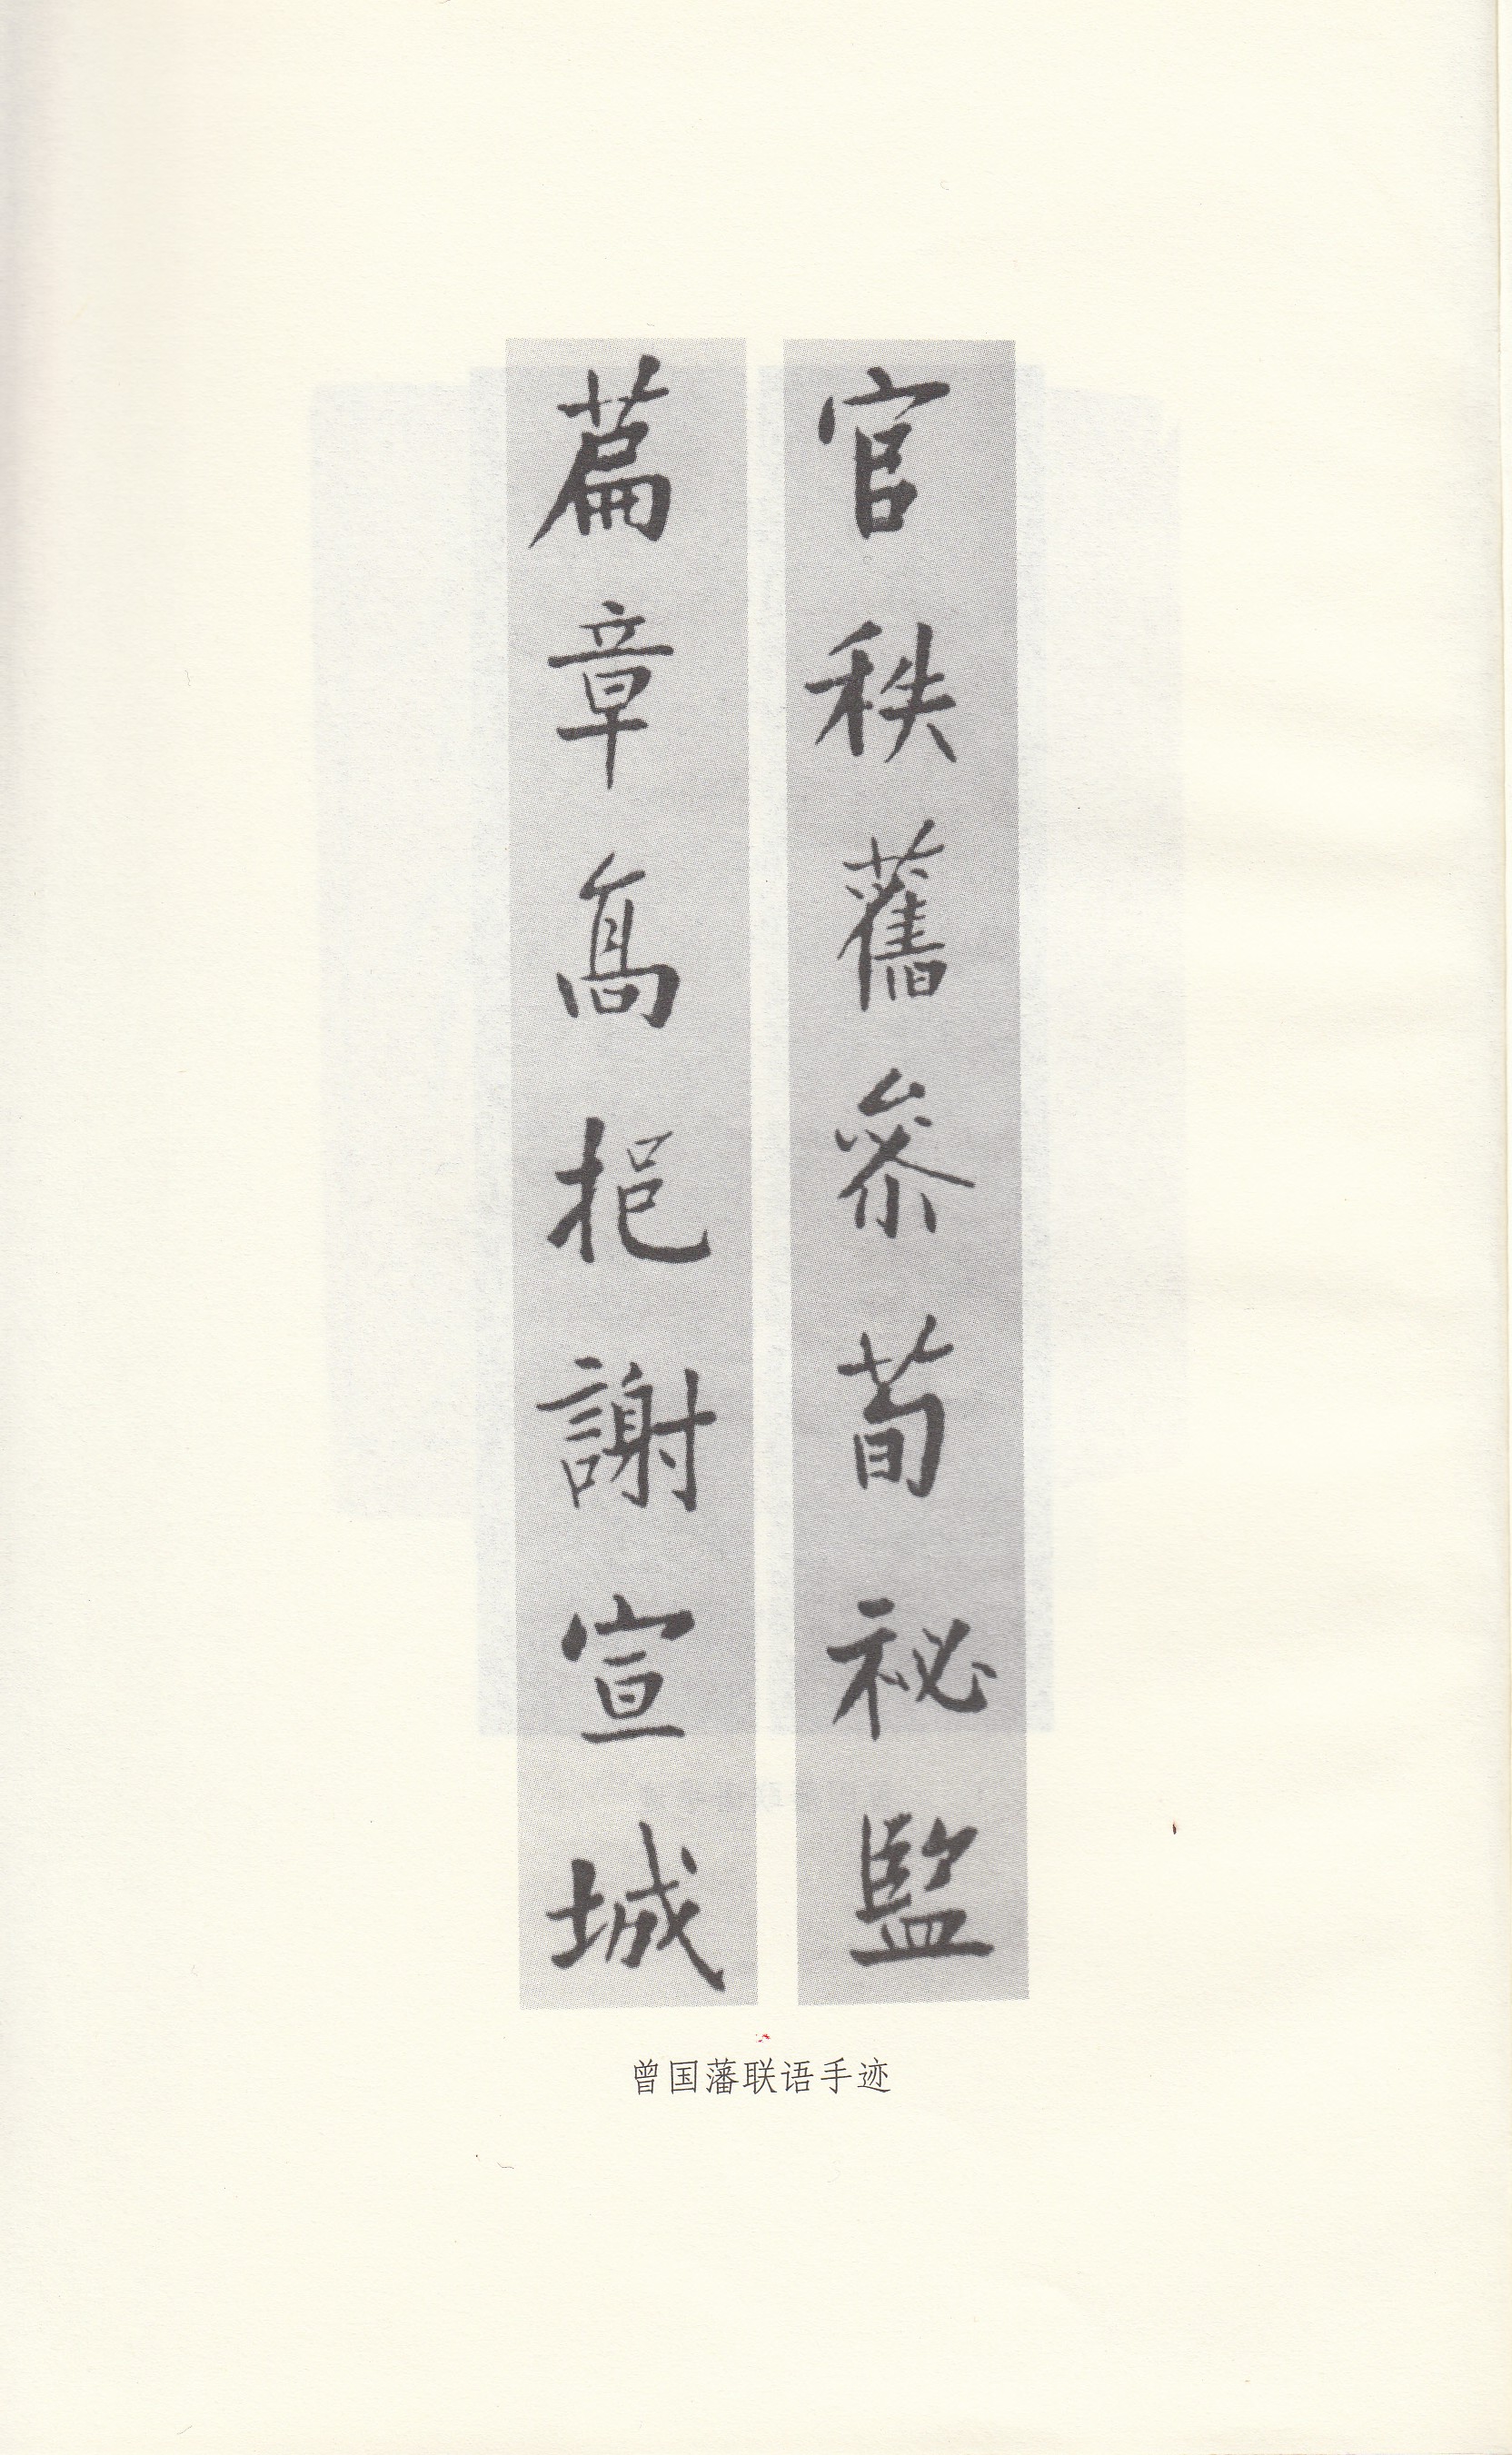 官秩舊參荀祕監
萹章高挹謝宣城
曾国藩联语手迹